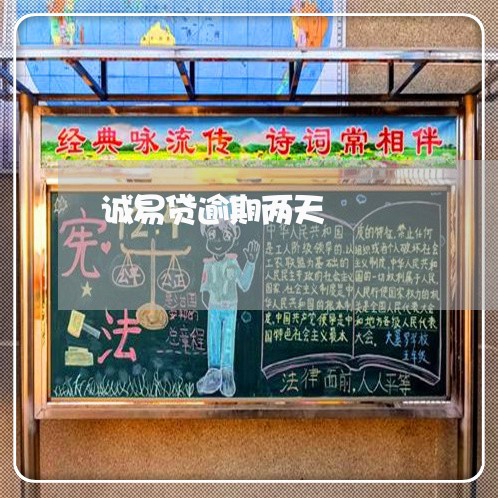 经典咏流传 诗词常相伴
诚易贷逾期两天
12·4
宪
法
公平
公正
总章程
中华人民共和国
是工人阶级领导的,以
工农联盟为基础的
人民民主专政的社会主义
国家,社会主义制度是中
华人民共和国的根本制
度,中国共产党领导是中
国特色社会主义最本
质的特征,禁止任何
组织或者个人破坏社会
主义制度,中华人民共和
国的一切权利属于人民,
人民行使国家权力的机
关是全国人民代表大会
和地方各级人民代表
大会。
五年级
法律面前,人人平等